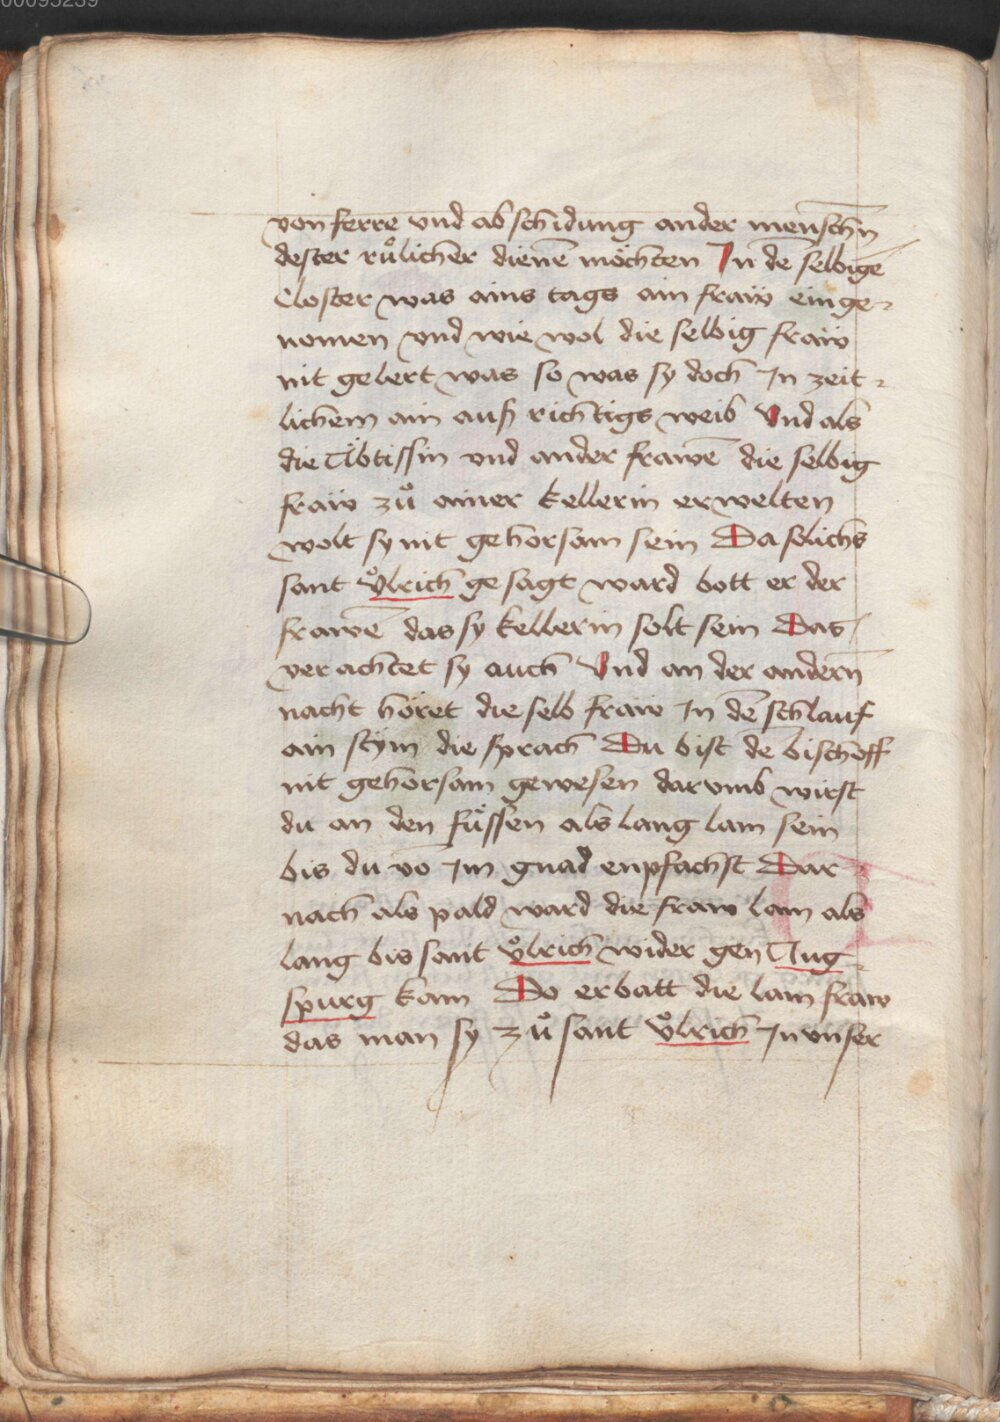 von ferre vnd abschidung ander menschn̄
dester růlicher dienē möchten In dē selbigē
Closter was ains tags ain fraẅ einge-
nomen vnd wie wol die selbig fraẅ
nit gelert was so was sy doch In zeit-
lichem ain auf richtigs weib Vnd als
die Äbtissin vnd ander frawē die selbig
fraẅ zů ainer kellerin erwelten
wolt sy nit gehorsam sein Da solichs
sant Ůlrich gesagt ward bott er der
frawē das sy kellerin solt sein Das
verachtet sy auch Vnd an der andern̄
nacht höret die selb fraẅ In dē schlauf
ain stym die sprach Du bist dē bischoff
nit gehorsam gewesen darvmb wirst
du an den füssen als lang lam sein
bis du vō Im gnad enpfachst Dar-
nach als pald ward die fraw lam als
lang bis sant Ůlrich wider gen Aug-
spurg kam Do erbatt die lam fraw
das man sy zů sant Ůlrich In vnser